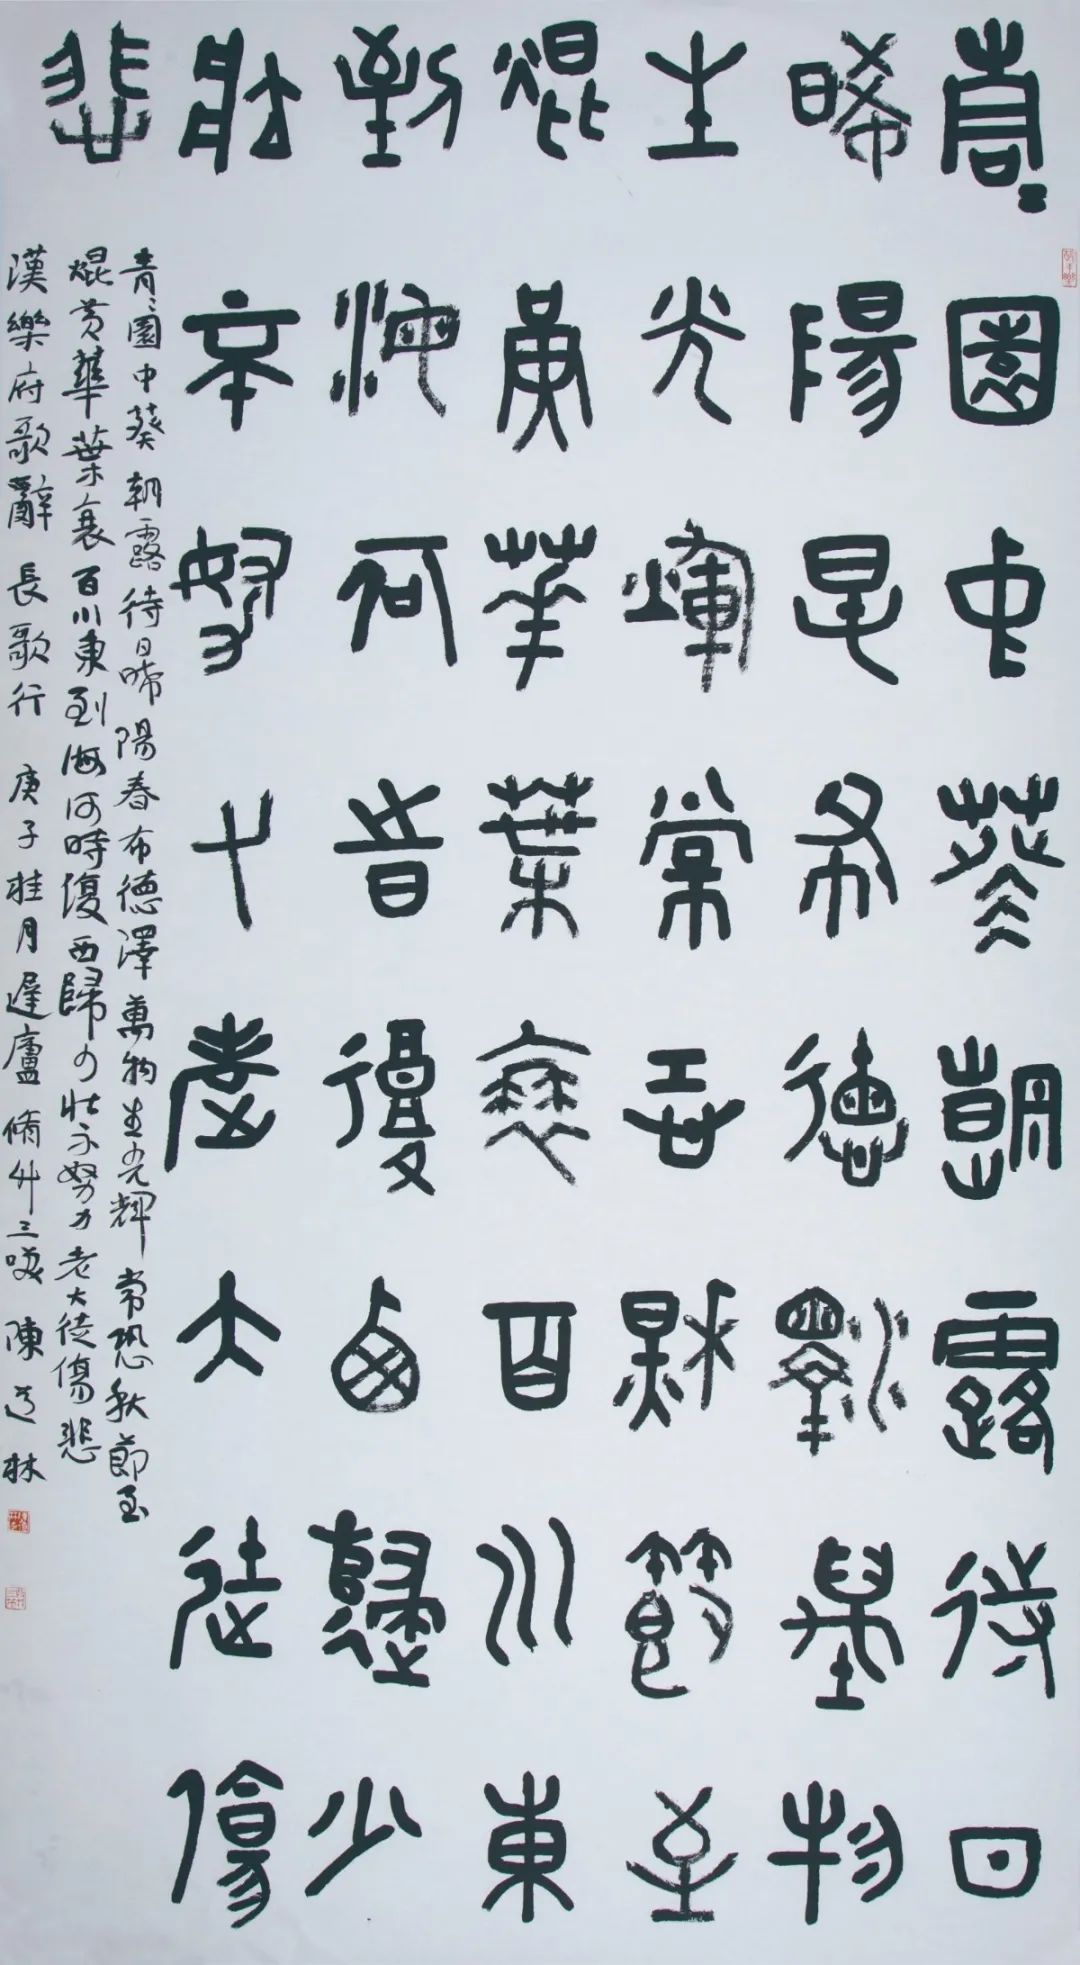 青〻園中葵朝露待日
晞陽春布德澤萬物
生光輝常恐秋節至
焜黃華葉衰百川東
到海何時復西歸少
壯不努力老大徒傷
悲
青〻園中葵朝露待日晞陽春布德澤萬物生光輝常恐秋節至
焜黃華葉衰百川東到海何時復西歸少壯不努力老大徒傷悲
漢樂府歌辭長歌行 庚子桂月遲廬 陳道林